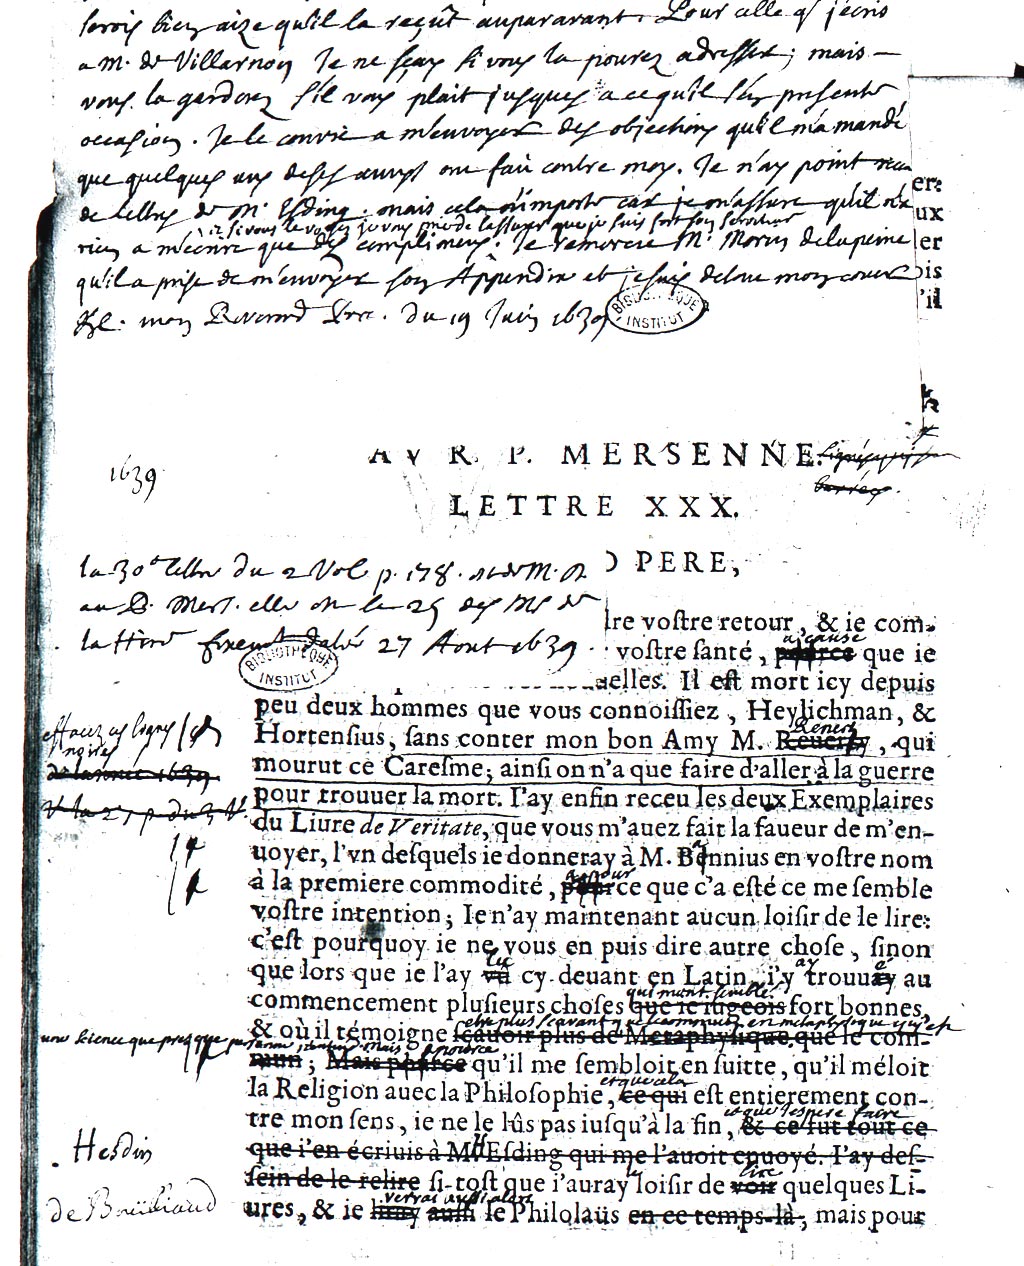 serois bien aize qu'il la reçût auparavant. Pour celle q. j'ecris
a M. de Villarnoü Je ne sçay si vous la pourez adresser; mais
vous la garderez s'il vous plait jusques a ce qu'il s'en presente
occasion. Je le convie a m'envoyer des objections qu'il m'a mandé
que quelques uns de ses amys ont fait contre moy. Je n'ay point
de lettres de Mr Esding. mais cela n'importe car je m'assure qu'il n'a
si vous le voyez je vous prie de l'assurer que je suis fort son serviteur
rien a m'écrire que des complimens. Je remercie Mr Morin de la peine
qu'il a prise de m'envoyer son Appendix et je suis de tout mon coeur
mon Reverend Pere. du 19 Juin 1639
BIBLIOTHEQUE
INSTITUT
er:
ux
er
ois
'il
AV R. P. MERSENNE.
1639
LETTRE XXX.
PERE,
la 30e lettre du 2 Vol. p. 178. de M. D.
au P. Mers. elle est la 25 des Ms de
la Hire datée 27 Aout 1639.
BIBLIOTHEQUE
INSTITUT
lre vostre retour, & ie com-
a cause
vostre santé, pource que ie
elles. Il est mort icy depuis
peu deux hommes que vous connoissiez, Heylichman, &
effacez ces lignes
noires
Reneri
Hortensius, sans conter mon bon Amy M. Reuery, qui
de l'année 1639
mourut ce Caresme; ainsi on n'a que faire d'aller à la guerre
pour trouuer la mort. I'ay enfin receu les deux Exemplaires
V. la 27 p. du 3 V.
du Liure de Veritate, que vous m'auez fait la faueur de m'en-
uoyer, l'vn desquels ie donneray à M. Bannius en vostre nom
à la premiere commodité, pource que c'a esté ce me semble
vostre intention; Ie n'ay maintenant aucun loisir de le lire:
c'est pourquoy ie ne vous en puis dire autre chose, sinon
lu
que lors que ie l'ay vû cy deuant en Latin, i'y trouuay au
qui m'ont semblé
commencement plusieurs choses que ie iugeois fort bonnes,
estre plus sçavant que le commun en metaphysique
& où il témoigne sçauoir plus de Metaphysique que le com-
une science que presque personne n'entend mais
mun; Mais pource qu'il me sembloit en suitte, qu'il méloit
et que cela
la Religion auec la Philosophie, ce qui est entierement con-
et que j'espere faire
tre mon sens, ie ne le lûs pas iusqu'à la fin, & ce fut tout ce
Hesdin
que i'en écriuis à M Esding qui me l'auoit enuoyé. I'ay des-
lire
sein de le relire si-tost que i'auray loisir de voir quelques Li-
de Boüilliaud
verray aussi alors
ures, & ie liray aussi le Philolaüs en ce temps-là; mais pour